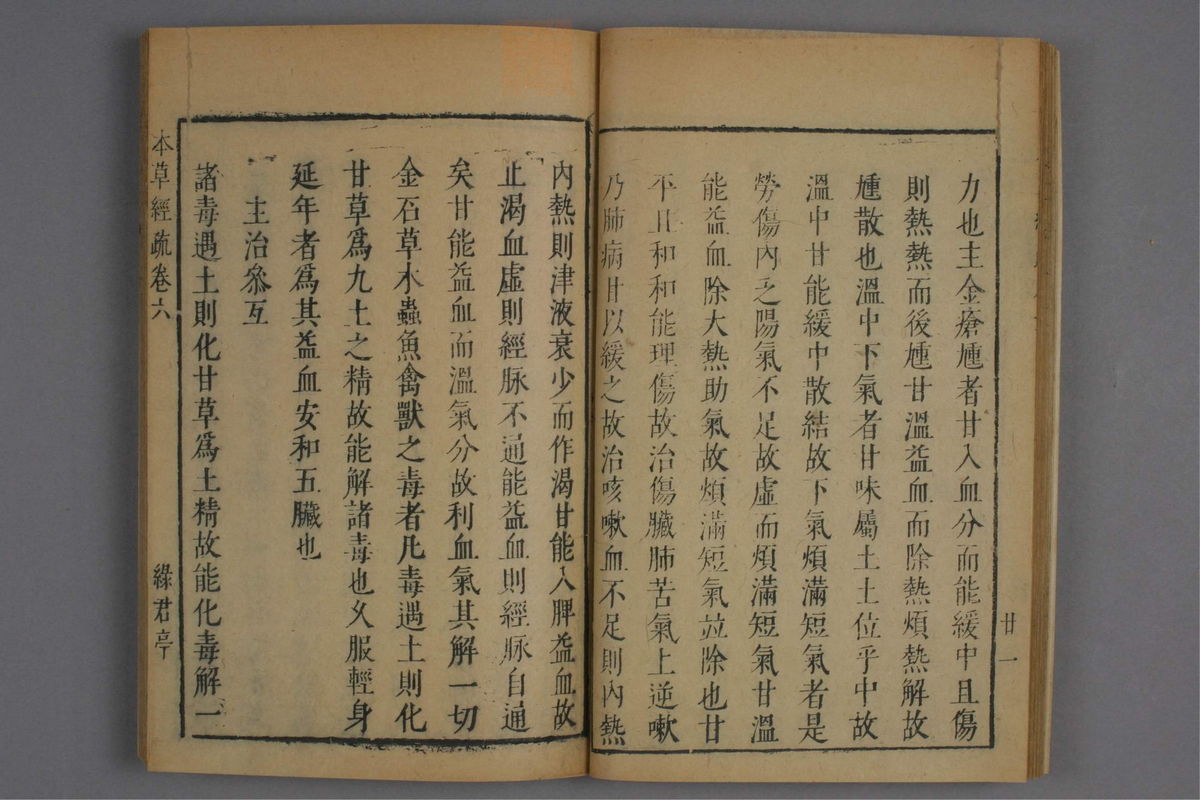 力也主金瘡尰者甘入血分而能緩中且傷
則熱熱而後尰甘溫益血而除熱煩熱解故
尰散也溫中下氣者甘味屬土土位乎中故
溫中甘能緩中散結故下氣煩滿短氣者是
勞傷內乏陽氣不足故虛而煩滿短氣甘溫
能益血除大熱助氣故煩滿短氣竝除也甘
平且和和能理傷故治傷臟肺苦氣上逆嗽
乃肺病甘以緩之故治咳嗽血不足則內熱
廿一
內熱則津液衰少而作渴甘能入脾益血故
止渴血虛則經脉不通能益血則經脉自通
矣甘能益血而溫氣分故利血氣其解一切
金石草木蟲魚禽獸之毒者凡毒遇土則化
甘草爲九土之精故能解諸毒也久服輕身
延年者爲其益血安和五臟也
主治叅互
諸毒遇土則化甘草爲土精故能化毒解一
本草經疏卷六
綠君亭